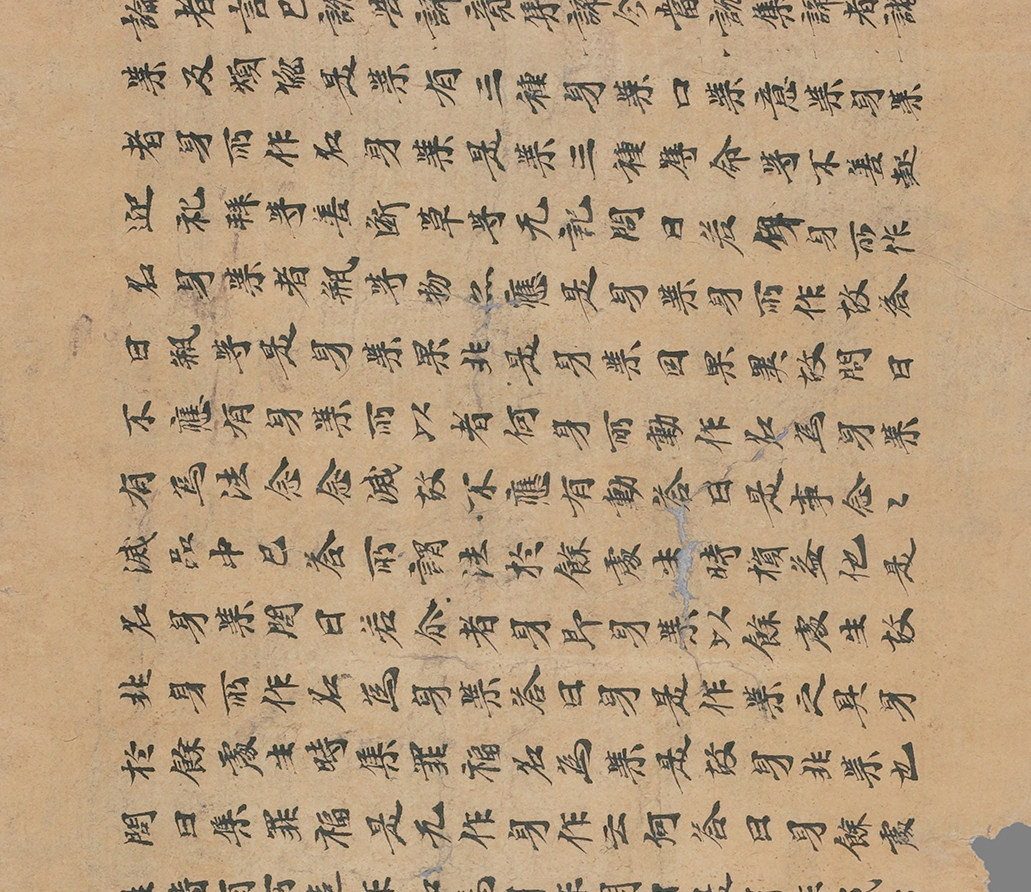 論者言已說苦諦竟集諦今當說集諦者諸
業及煩惱是業有三種身業口業意業身業
者身所作名身業是業三種奪命等不善起
迎礼拜等善斷草等无記問曰若身所作
名身業者瓶等物亦應是身業身所作故答
曰瓶等是身業果非是身業因果異故問曰
不應有身業所以者何身所動作名為身業
有為法念念滅故不應有動答曰是事念〻
滅品中已答所謂法於餘處生時損益他是
名身業問曰若尒者身即身業以餘處生故
非身所作名為身業答曰身是作業之具身
於餘處生時集罪福名為業是故身非業也
問曰集罪福是无作身作云何答曰身餘處